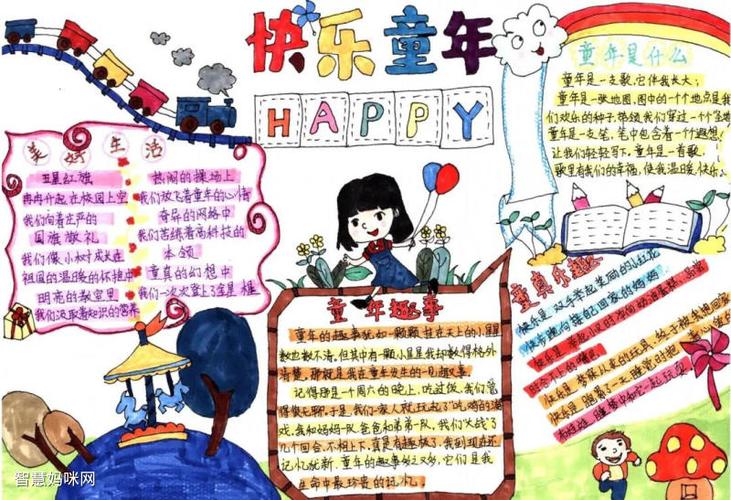 快乐童年
HAPPY
美好生活
五星红旗
冉冉升起在校园上空
我们向着庄严的
国旗敬礼
我们像小树成长在
祖国的温暖的怀抱中
明亮的教室里
我们汲取着知识的营养
热闹的操场上
我们放飞着童年的心情
奇异的网络中
我们苦练着高科技的
本领
童真的幻想中
我们一次次登上了金星
童年是什么
童年是一支歌,它伴我长大;
童年是一张地图,图中的一个地点是我
们欢乐的种子,带领我们穿过一个
童年是一支笔,笔中包含着一个遐想!
让我们轻轻写下,童年是一首歌,
歌里有我们的幸福,使我温暖、快乐。
童年趣事
童年的趣事犹如一颗颗挂在天上的小星星
数也数不清。但其中有一颗小星星我却数得格外
清楚。那就是我在童年发生的一見趣事。
记得那是一个周六的晚上,吃过饭,我们觉
得很无聊,于是,我们一家人就玩起了"吃鸡"的游
戏,我和妈妈一队,爸爸和弟弟一队,我们大战了
几个回合,不相上下,真是有趣极了,我到现在还
记忆犹新,童年的趣事多又多,它们是我
生命中最珍贵的记忆。
童真乐趣
快乐是,双手举起奖励的小红花
快步跑向接起回家的妈妈
智慧妈咪网